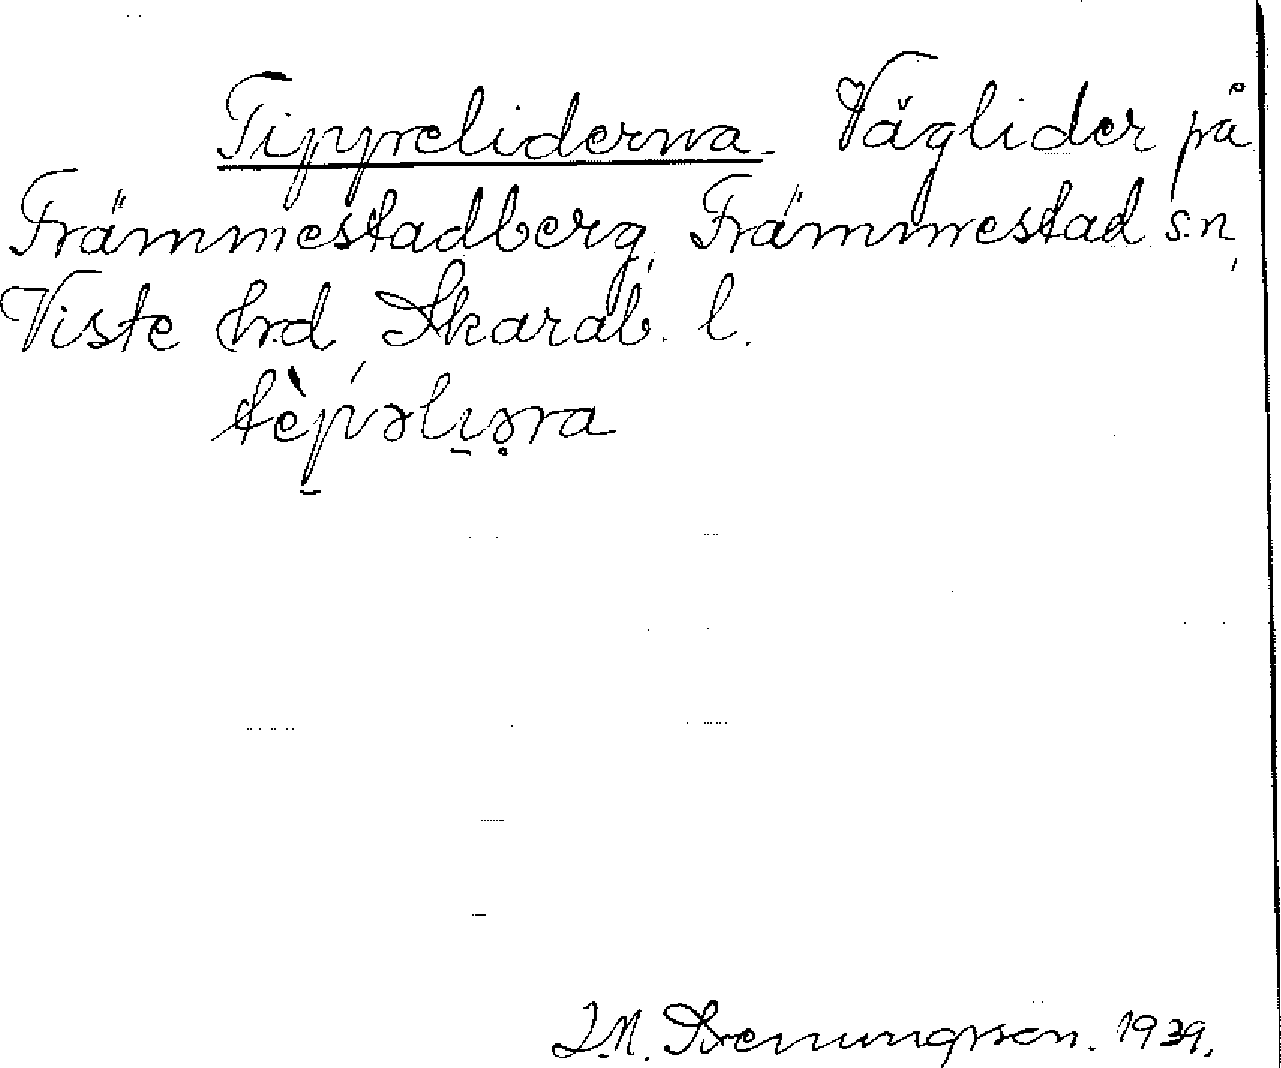 Tippeliderna. Väglider på
Främmestadberg, Främmestad sn,
Viste hrd, Skarab. l.
tèpəlıə̣ra
1939.